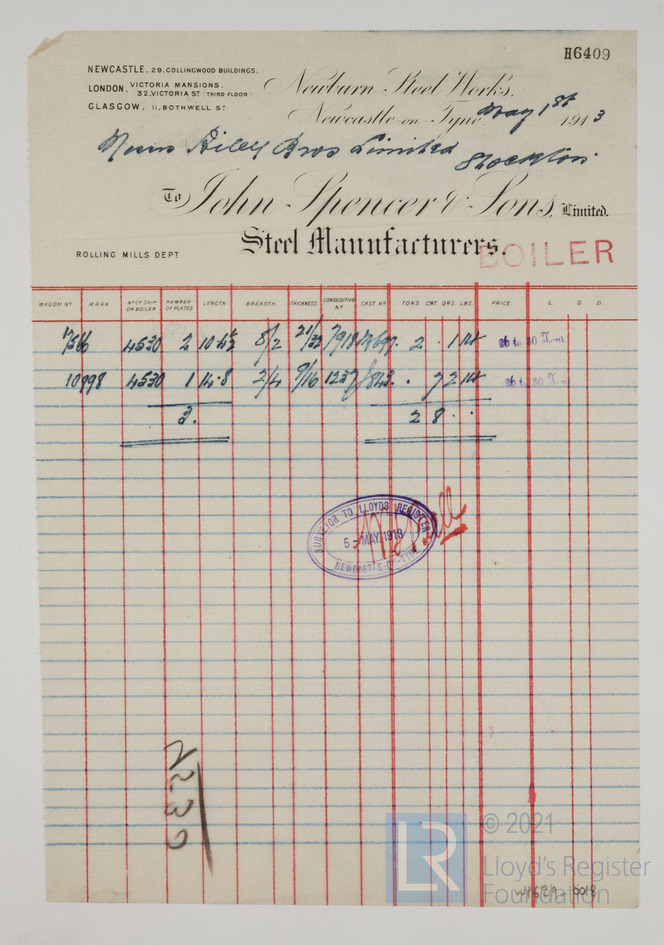 H6409
NEWCASTLE. 29. COLLINGWOOD BUILDINGS.
LONDON. VICTORIA MANSIONS. 32, VICTORIA ST (THIRD FLOOR)
GLASGOW. 11, BOTHWELL ST
Newburn Steel Works,
Newcastle-on-Tyne May 1st 1913
Messrs Riley Bros Limited Stockton
To John Spencer & Sons, Limited.
Steel Manufacturers.
BOILER
ROLLING MILLS DEPT
WAGON No. MARK No OF SHIP OR BOILER NUMBER OF PLATES LENGTH BREADTH THICKNESS CONSECUTIVE No CAST No TONS. CWT. QRS. LBS. PRICE L. S. D.
4530 2 5/2 21/32 2 . 1 14 26 to 30 Tons
10998 4530 1 14.8 2/4 9/16 1237 . 7 2 14 26 to 30
3. 2 8 . .
SURVEYOR TO LLOYDS REGISTER
5 - MAY 1913
NEWCASTLE-ON-TYNE
N239
LR
© 2021
Lloyd's Register
Foundation